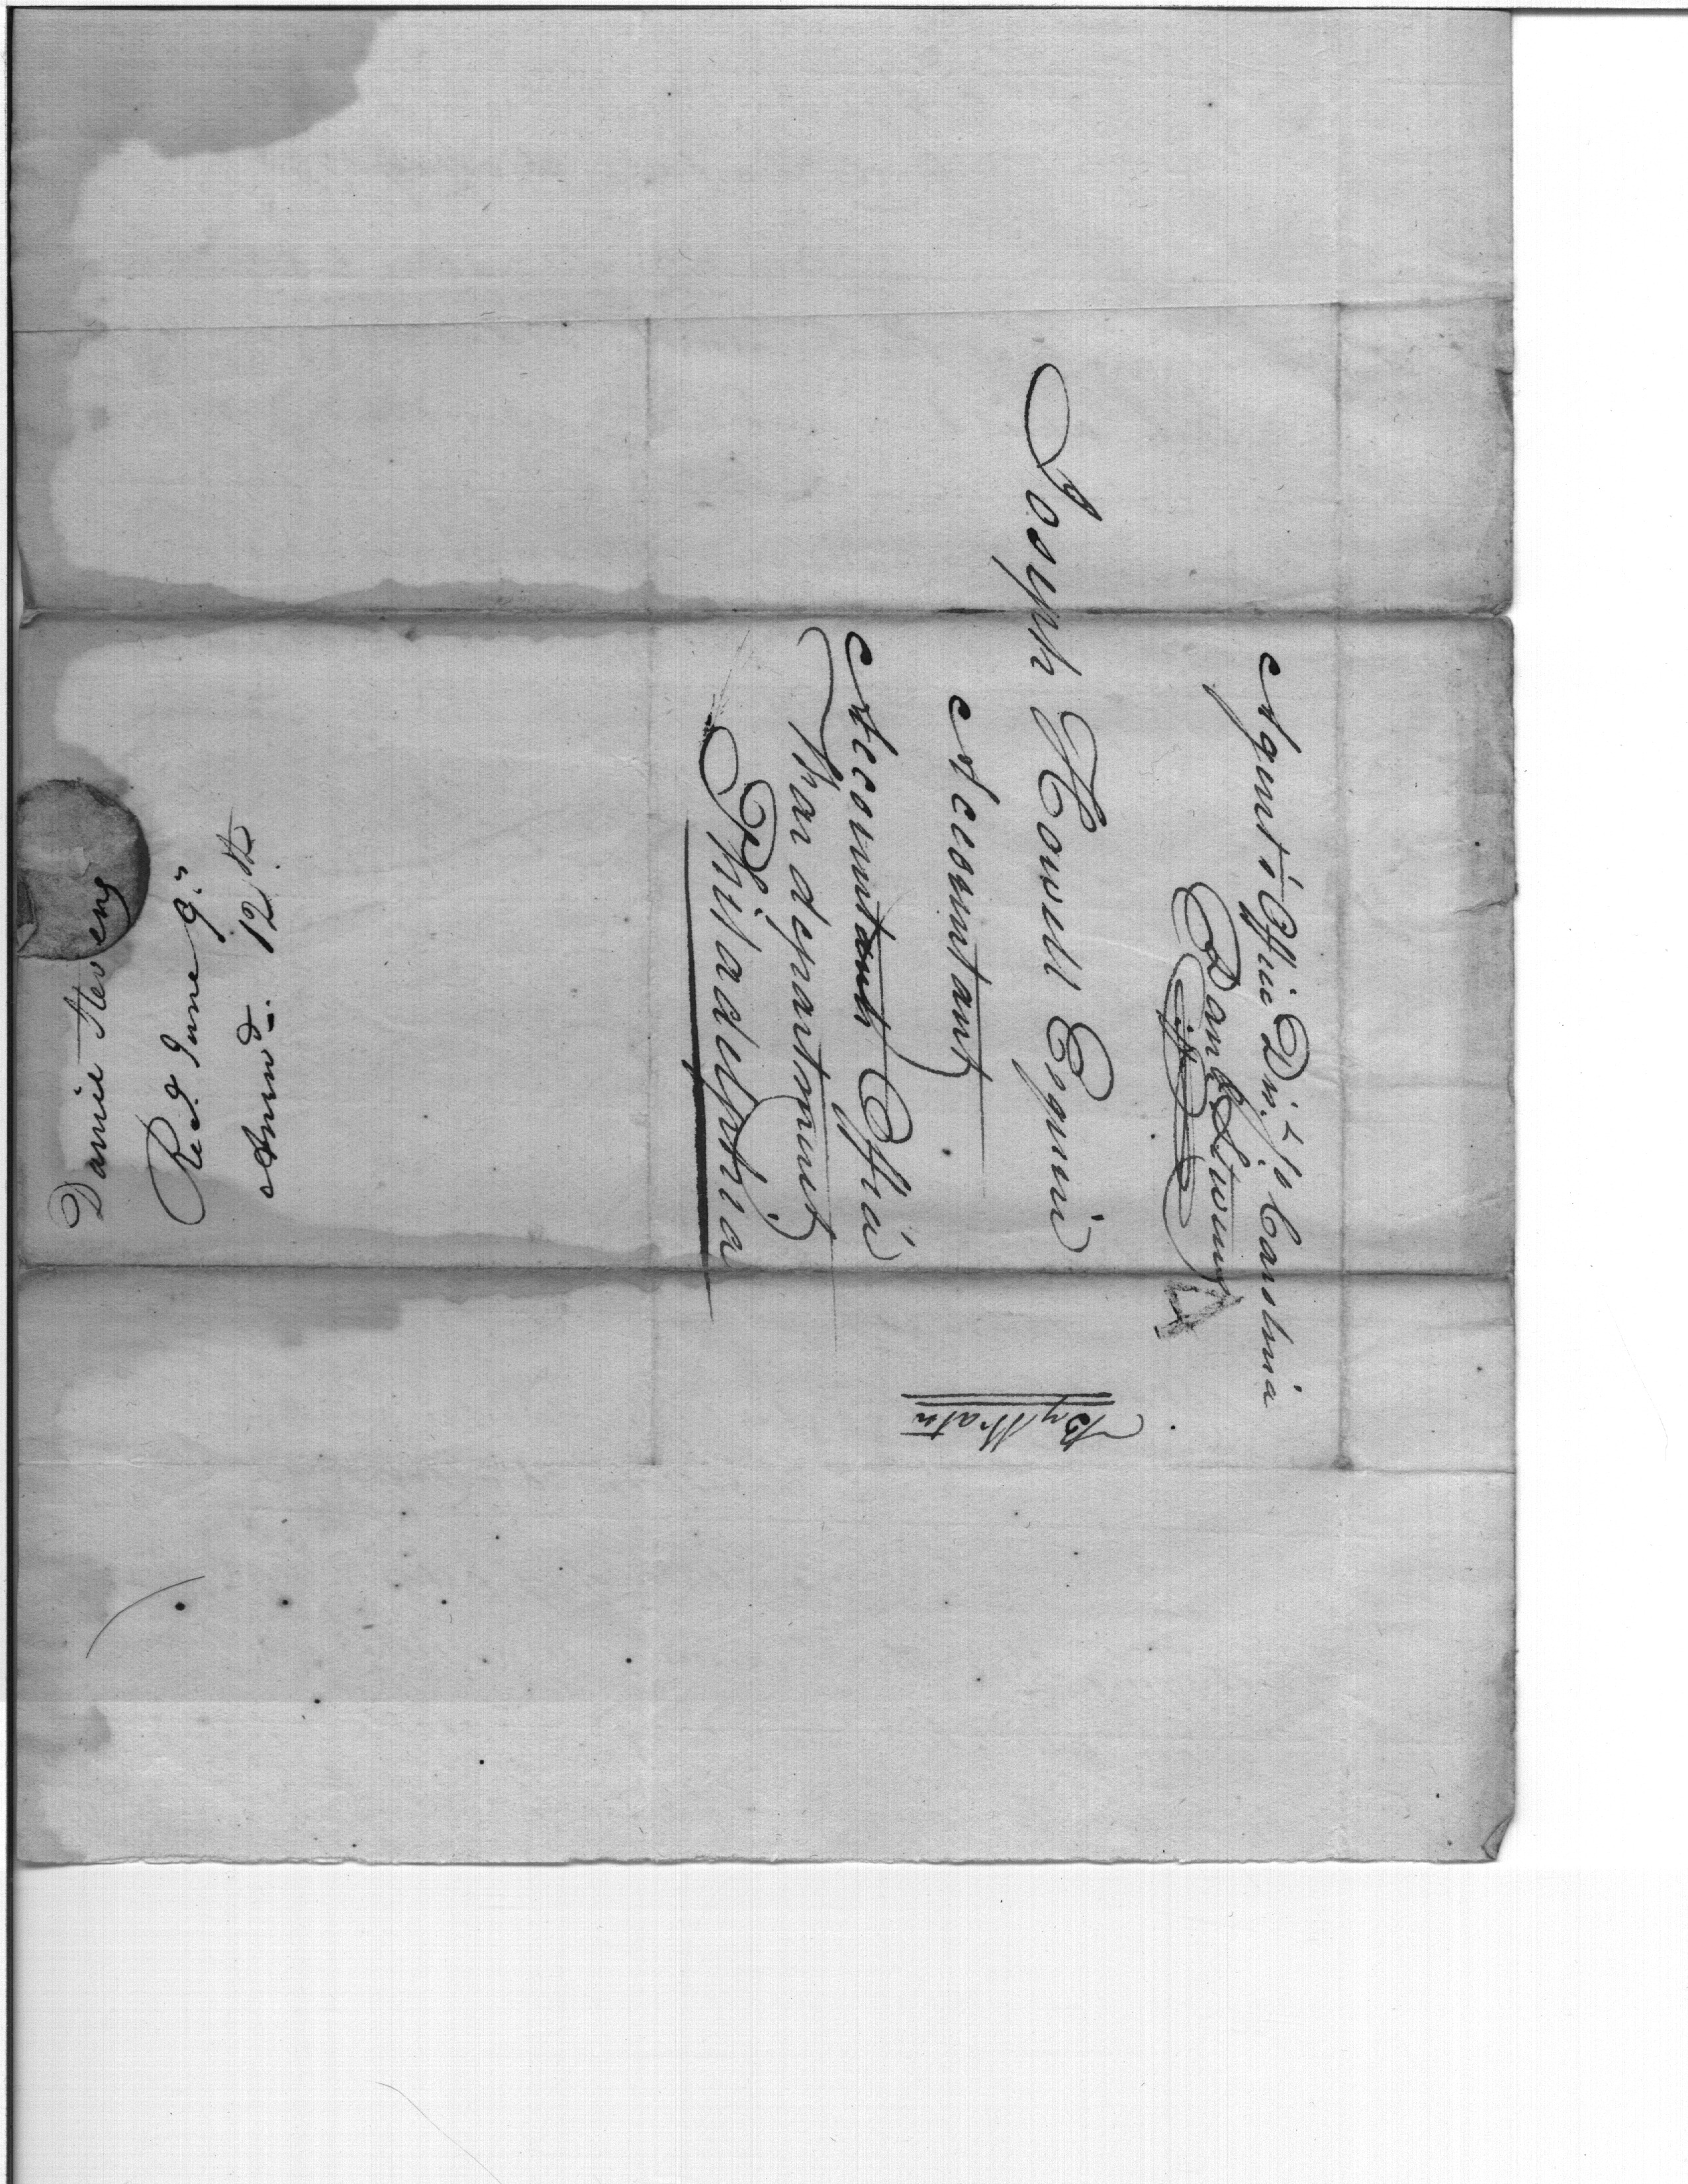 Agents Office Dis.t So Carolina
Dan.l Stevens
Joseph Howell Esquire
Accountant
Accountants Office
War department
Philadelphia
By Water
Daniel Stevens
Rec.d June 9.
Answ.d 12.th